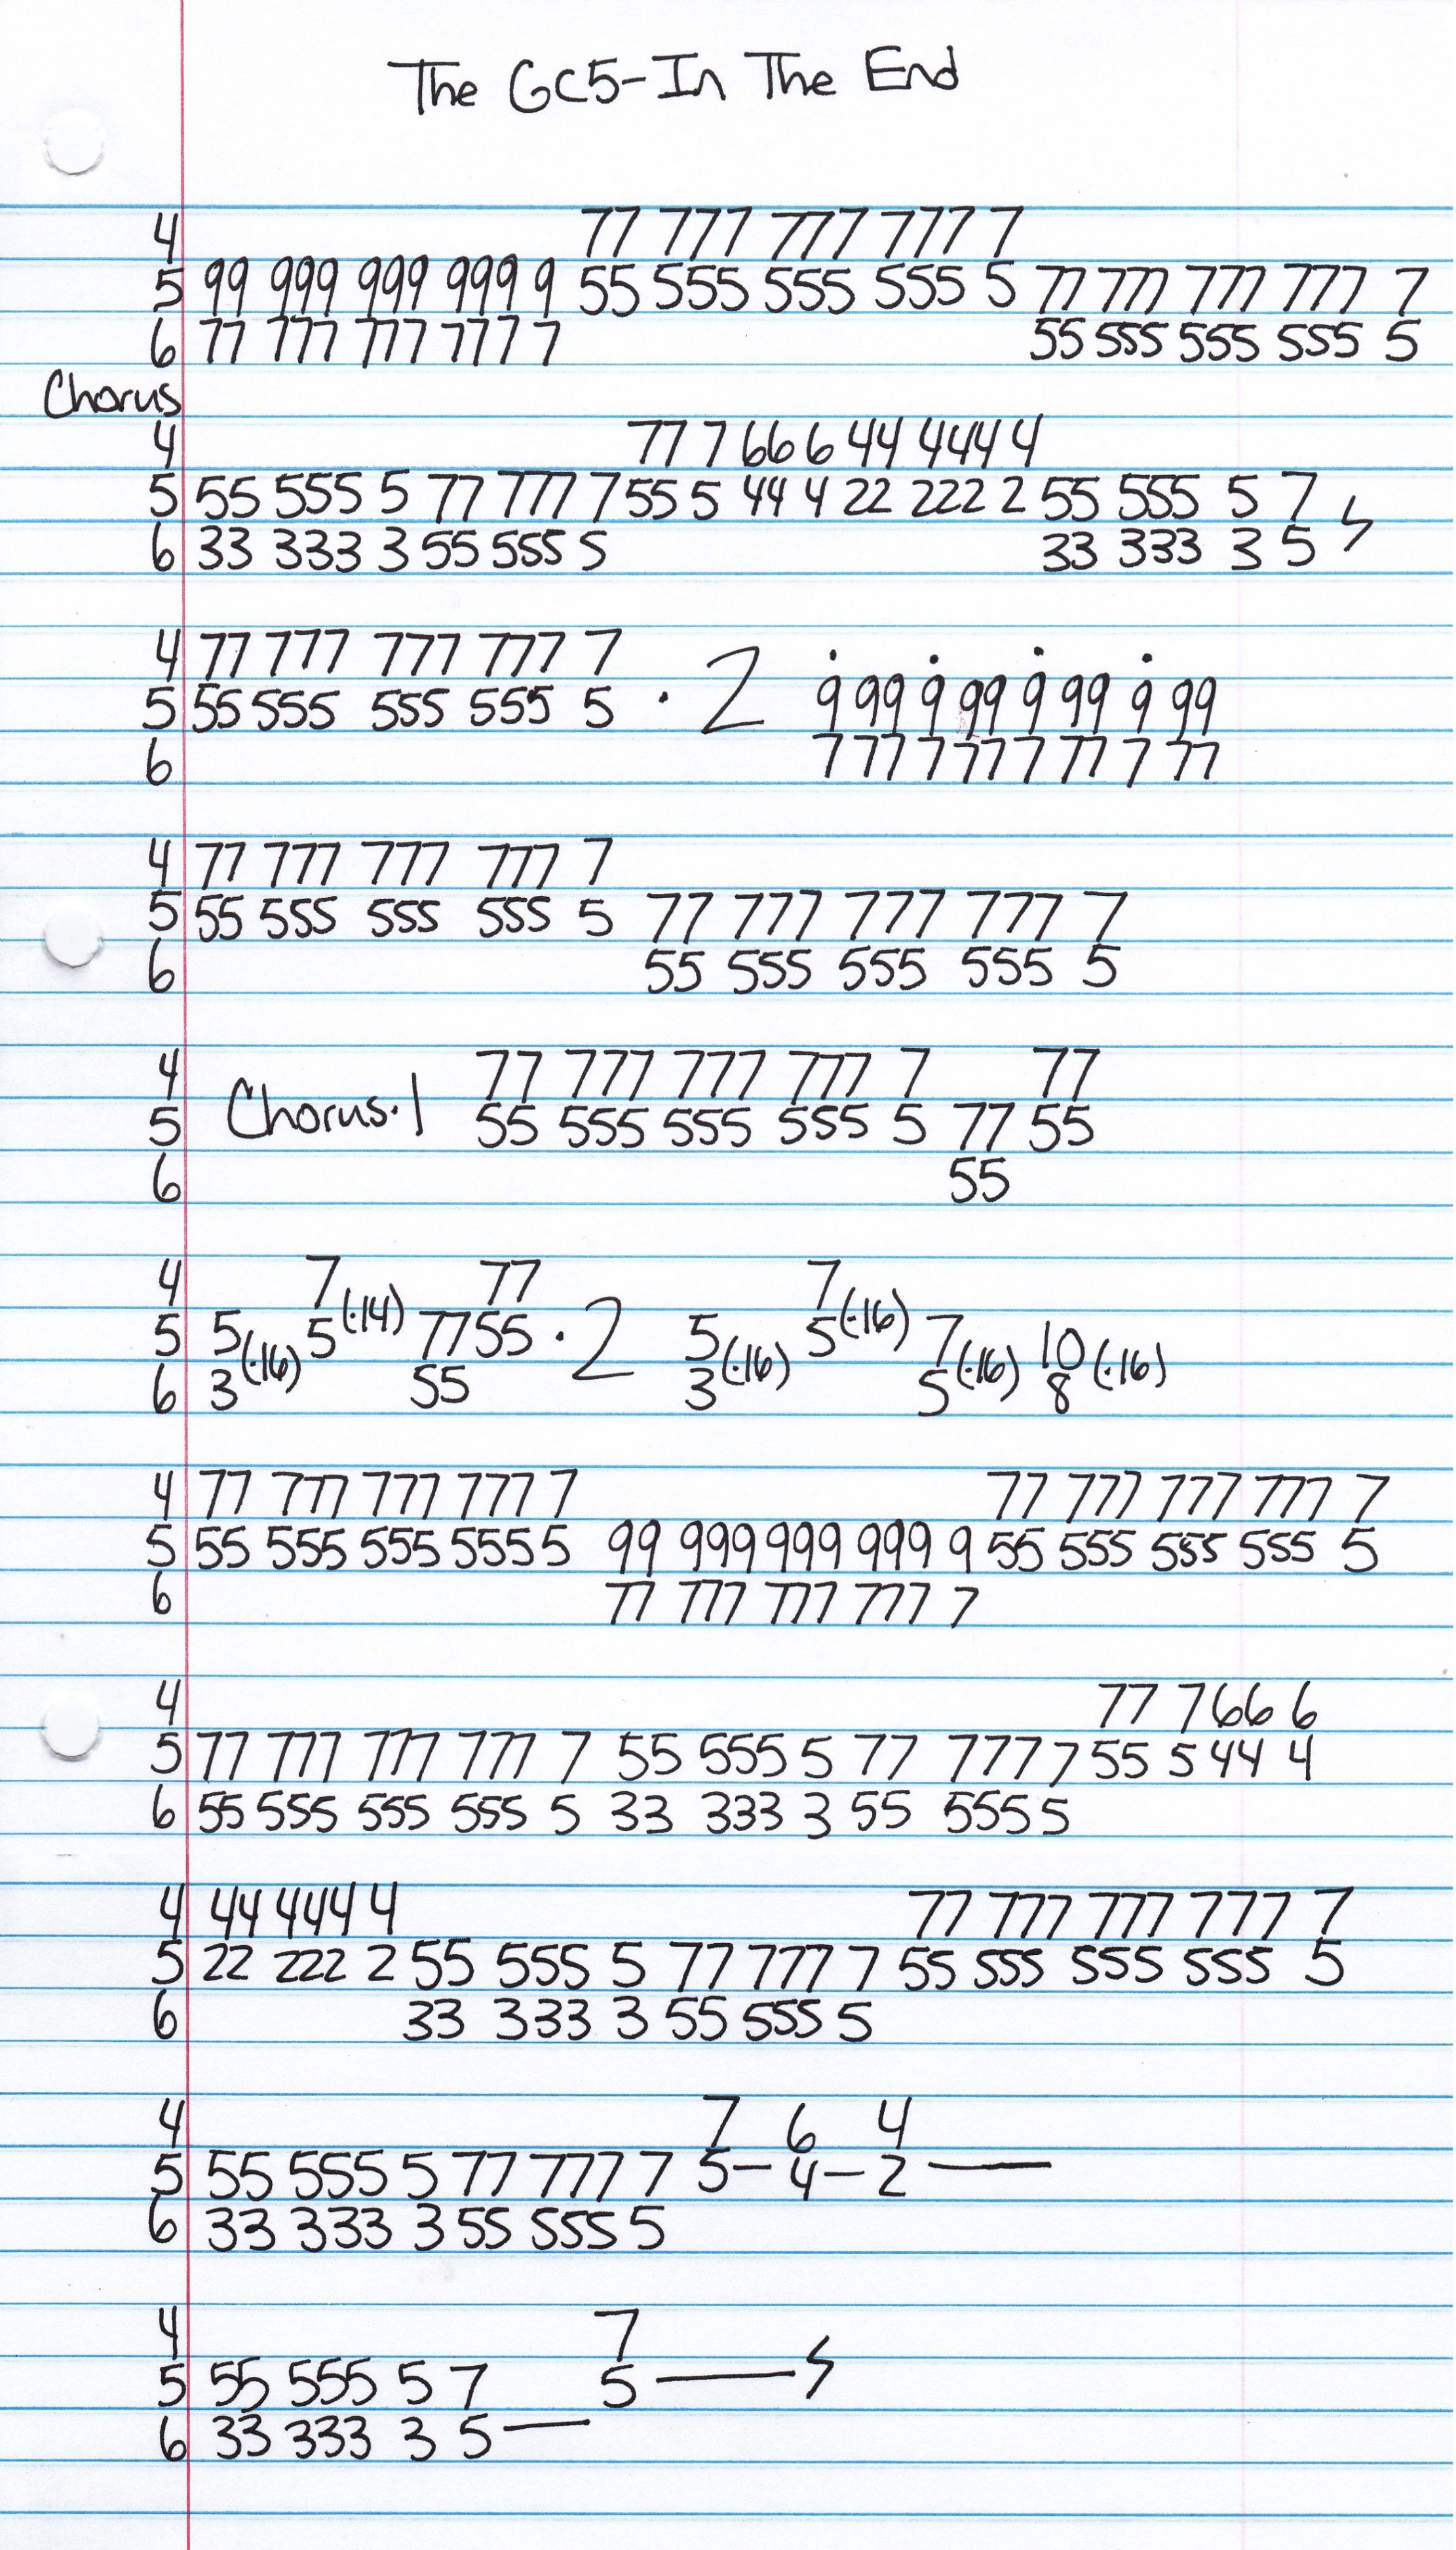 The GC5-In The End
4 77 777 777 777 7
5 99 999 999 999 9 55 555 555 555 5 77 777 777 777 7
6 77 777 777 777 7 55 555 555 555 5
Chorus
4 77 7 66 6 44 444 4
5 55 555 5 77 777 7 55 5 44 4 22 222 2 55 555 5 7
6 33 333 3 55 555 5 33 333 3 5
4 77 777 777 777 7
5 55 555 555 555 5 · 2 9 99 9 99 9 99 9 99
6 7 77 7 77 7 77 7 77
4 77 777 777 777 7
5 55 555 555 555 5 77 777 777 777 7
6 55 555 555 555 5
4 77 777 777 777 7 77
5 Chorus·1 55 555 555 555 5 77 55
6 55
4 7 77 7
5 5 (·16) 5 (·14) 77 55 · 2 5 (·16) 5 (·16) 7 (·16) 10 (·16)
6 3 55 3 5 8
4 77 777 777 777 7 77 777 777 777 7
5 55 555 555 555 5 99 999 999 999 9 55 555 555 555 5
6 77 777 777 777 7
4 77 7 66 6
5 77 777 777 777 7 55 555 5 77 777 7 55 5 44 4
6 55 555 555 555 5 33 333 3 55 555 5
4 44 444 4 77 777 777 777 7
5 22 222 2 55 555 5 77 777 7 55 555 555 555 5
6 33 333 3 55 555 5
4 7 6 4
5 55 555 5 77 777 7 5— 4— 2——
6 33 333 3 55 555 5
4 7
5 55 555 5 7 5——
6 33 333 3 5——